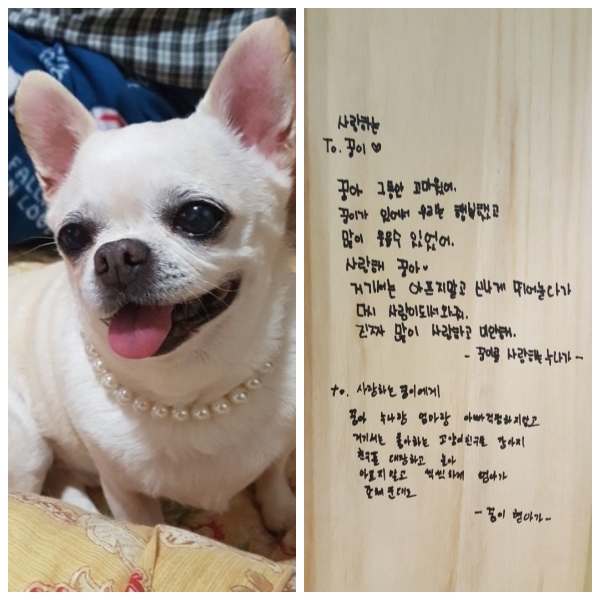 FALL
IN LOV
사랑하는
To. 꿍이 ♡
꿍아 그동안 고마웠어.
꿍이가 있어서 우리는 행복했고
많이 웃을수 있었어.
사랑해 꿍아♡
거기서는 아프지말고 신나게 뛰어놀다가
다시 사랑이되어와줘.
진짜 많이 사랑하고 미안해.
- 꿍이를 사랑하는 누나가 -
to. 사랑하는 꿍이에게
꿍아 누나랑 엄마랑 아빠걱정하지말고
거기서는 좋아하는 고양이친구도 강아지
친구도 대장하고 놀아
아프지말고 씩씩하게 엄마가
- 꿍이 엄마가 -